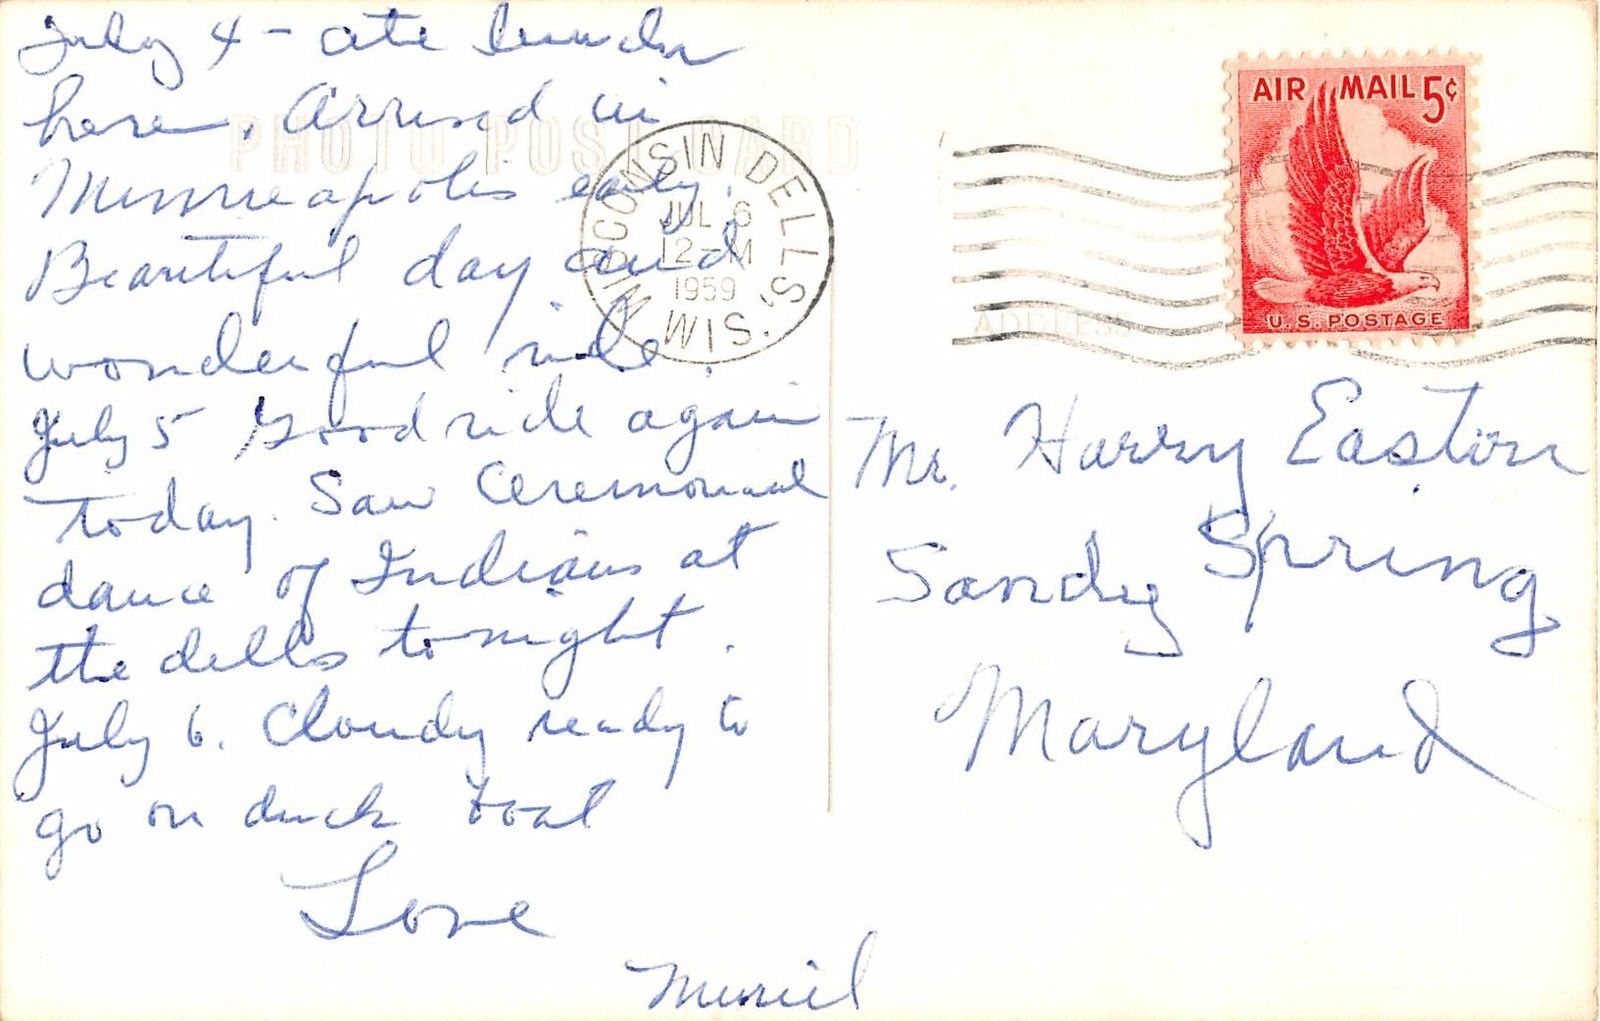 July 4 - ate lunch
here. Arrived in
Minneapolis early.
Beautiful day and
wonderful ride.
July 5 Good ride again
today. Saw Ceremonial
dance of Indians at
the dells tonight.
July 6. Cloudy ready to
go on duck boat
Love
Muriel
PHOTO POST CARD
WISCONSIN DELLS, WIS.
JUL 6
12 - M
1959
AIR MAIL 5¢
U.S. POSTAGE
ADDRESS
Mr. Harry Easton
Sandy Spring
Maryland